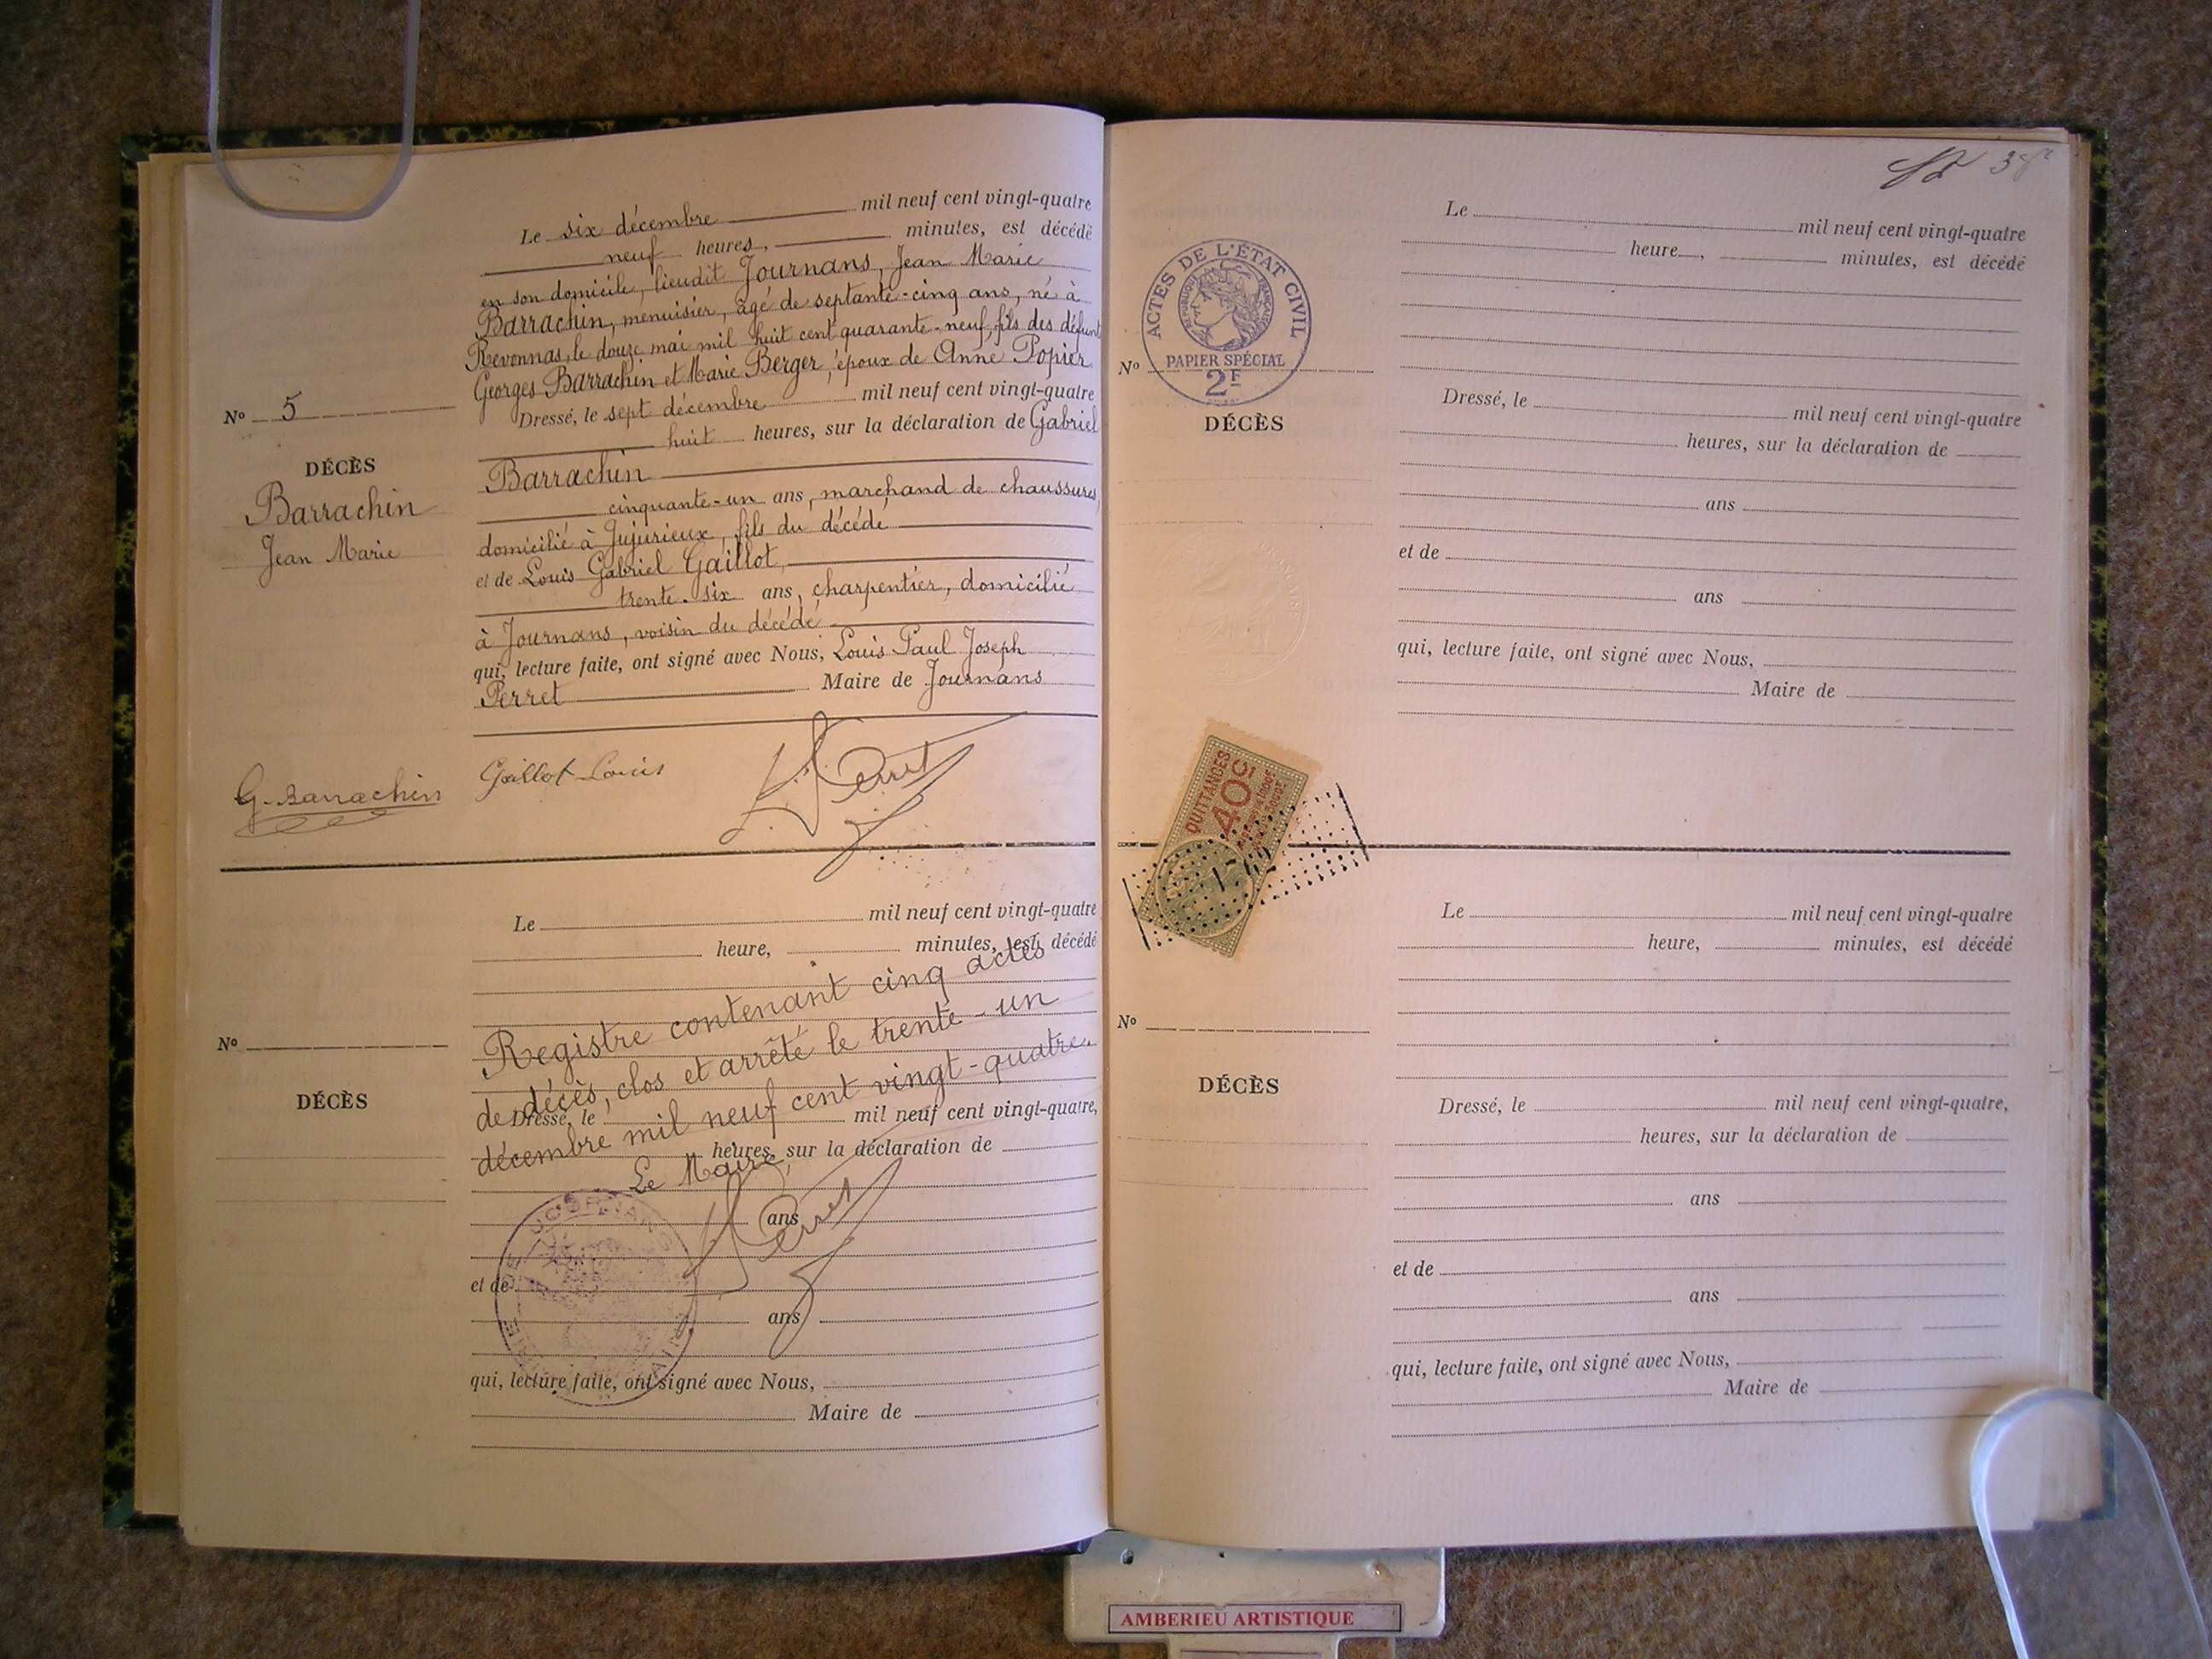 Le six décembre mil neuf cent vingt-quatre
neuf heures, minutes, est décédé
en son domicile, lieudit Journans, Jean Marie
Barrachin, menuisier, âgé de septante-cinq ans, né à
Revonnas, le douze mai mil huit cent quarante-neuf, fils des défunts
Georges Barrachin et Marie Berger, époux de Anne Popier
Dressé, le sept décembre mil neuf cent vingt-quatre
huit heures, sur la déclaration de Gabriel
Barrachin
cinquante-un ans, marchand de chaussures,
domicilié à Jujurieux, fils du décédé
et de Louis Gabriel Gaillot,
trente-six ans, charpentier, domicilié
à Journans, voisin du décédé
qui, lecture faite, ont signé avec Nous, Louis Paul Joseph
Perret Maire de Journans
No 5
DÉCÈS
Barrachin
Jean Marie
G. Barrachin Gaillot Louis Perret
Le mil neuf cent vingt-quatre
heure, minutes, est décédé
Registre contenant cinq actes
de décès, clos et arrêté le trente-un
décembre mil neuf cent vingt-quatre.
Le Maire,
Perret
No
DÉCÈS
Dressé, le mil neuf cent vingt-quatre,
heures, sur la déclaration de
ans
et de
ans
qui, lecture faite, ont signé avec Nous,
Maire de
ACTES DE L'ÉTAT CIVIL
RÉPUBLIQUE FRANÇAISE
PAPIER SPÉCIAL
2F
No
DÉCÈS
Le mil neuf cent vingt-quatre
heure, minutes, est décédé
Dressé, le mil neuf cent vingt-quatre
heures, sur la déclaration de
ans
et de
ans
qui, lecture faite, ont signé avec Nous,
Maire de
QUITTANCES
40c
No
DÉCÈS
Le mil neuf cent vingt-quatre
heure, minutes, est décédé
Dressé, le mil neuf cent vingt-quatre,
heures, sur la déclaration de
ans
et de
ans
qui, lecture faite, ont signé avec Nous,
Maire de
AMBERIEU ARTISTIQUE